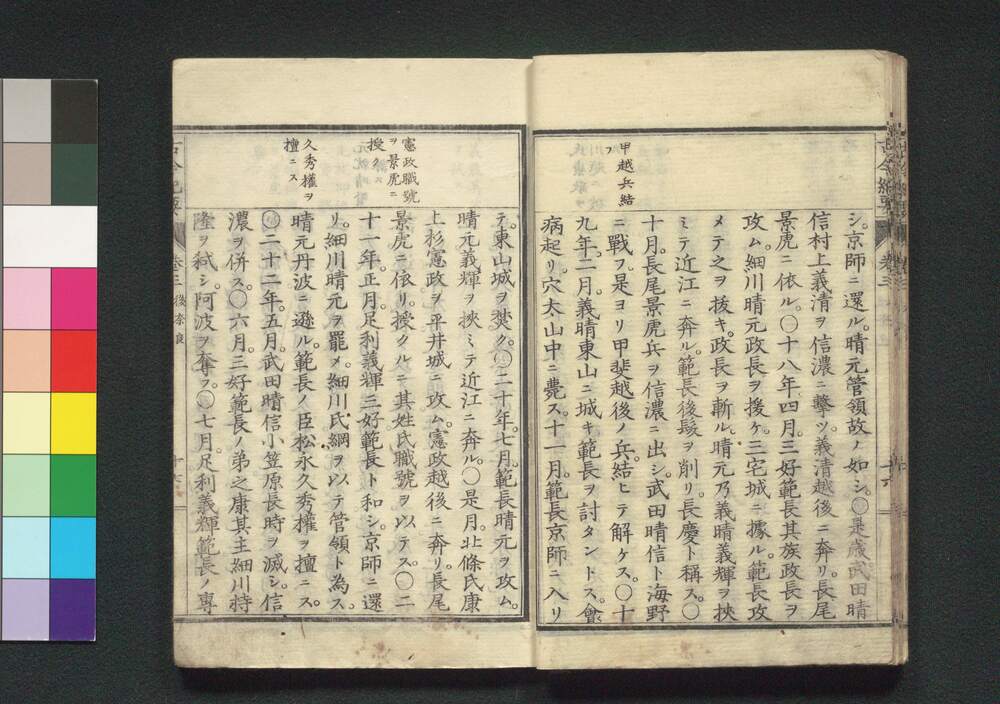 シ。京師ニ還ル。晴元管領故ノ如シ。〇是歳武田晴
信村上義清ヲ信濃ニ擊ツ。義清越後ニ奔リ。長尾
景虎ニ依ル。〇十八年四月。三好範長其族政長ヲ
攻ム。細川晴元政長ヲ援ケ。三宅城ニ據ル。範長攻
メテ之ヲ拔キ。政長ヲ斬ル。晴元乃義晴義輝ヲ挾
ミテ近江ニ奔ル。範長後髮ヲ削リ。長慶ト稱ス。〇
十月。長尾景虎兵ヲ信濃ニ出シ。武田晴信ト海野
ニ戰フ。是ヨリ甲斐越後ノ兵。結ヒテ解ケス。〇十
九年。二月義晴東山ニ城キ範長ヲ討タントス。會
病起リ。穴太山中ニ薨ス。十一月。範長京師ニ入リ
甲越兵結
フ
テ。東山城ヲ焚ク。〇二十年。七月。範長晴元ヲ攻ム。
晴元義輝ヲ挾ミテ近江ニ奔ル。〇是月。北條氏康
上杉憲政ヲ平井城ニ攻ム。憲政越後ニ奔リ。長尾
景虎ニ依リ。授クルニ其姓氏職號ヲ以テス。〇二
十一年。正月。足利義輝三好範長ト和シ。京師ニ還
リ。細川晴元ヲ罷メ。細川氏綱ヲ以テ管領ト為ス。
晴元丹波ニ遜ル。範長ノ臣松永久秀權ヲ擅ニス。
〇二十二年。五月。武田晴信小笠原長時ヲ滅シ。信
濃ヲ併ス。〇六月。三好範長ノ弟之康其主細川持
隆ヲ弑シ。阿波ヲ奪フ。〇七月。足利義輝範長ノ專
憲政職號
ヲ景虎ニ
授ク
久秀權ヲ
擅ニス
卷三
後奈良
十六